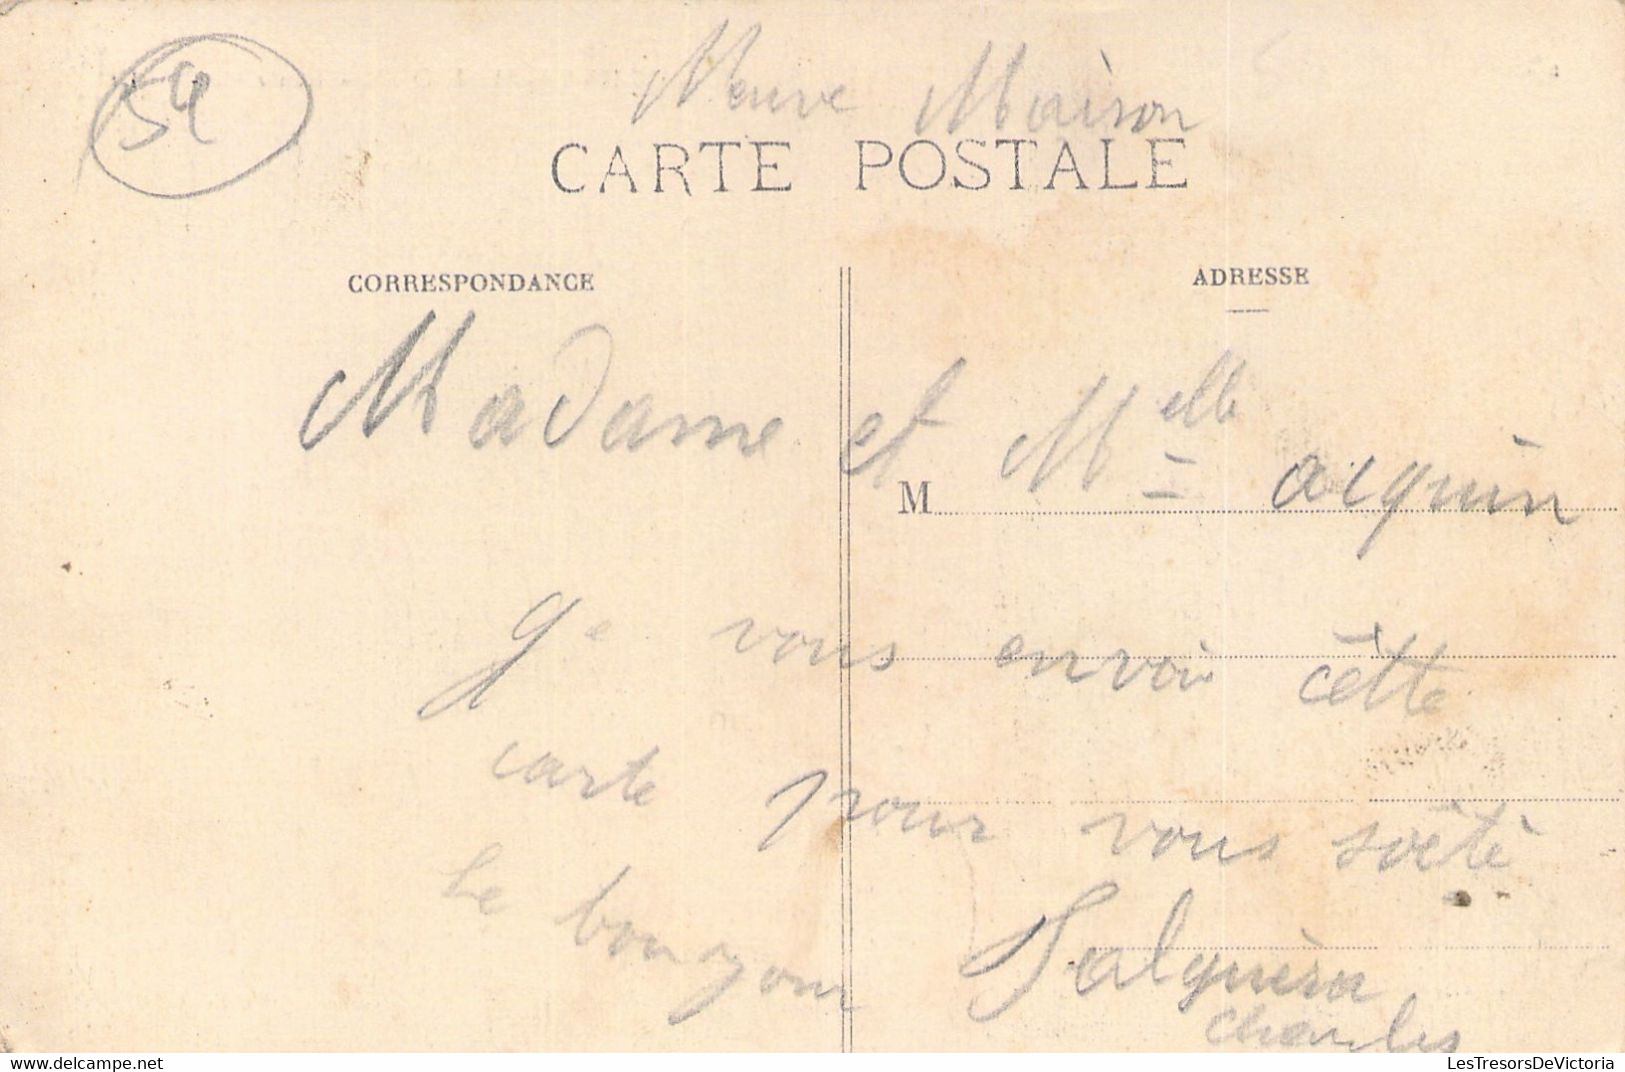 54
Neuve Maison
CARTE POSTALE
CORRESPONDANCE
ADRESSE
Madame et Melle aiquin
M
Je vous envoi cètte
carte pour vous soèté
le bongour Salguèra
Charles
LesTresorsDeVictoria